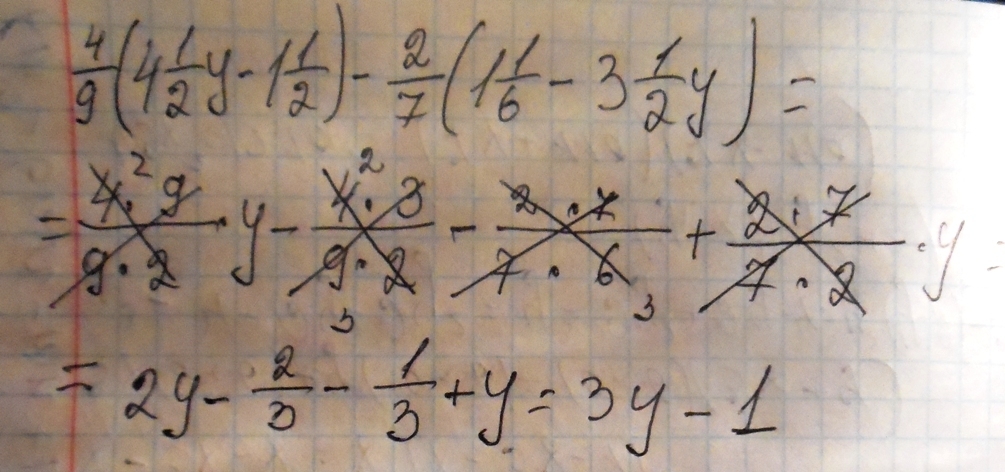 4/9(4 1/2 y - 1 1/2) - 2/7(1 1/6 - 3 1/2 y) =
= (4² · 9)/(9 · 2) · y - (4² · 3)/(9₃ · 2) - (2 · 7)/(7 · 6₃) + (2 · 7)/(7 · 2) · y =
= 2y - 2/3 - 1/3 + y = 3y - 1